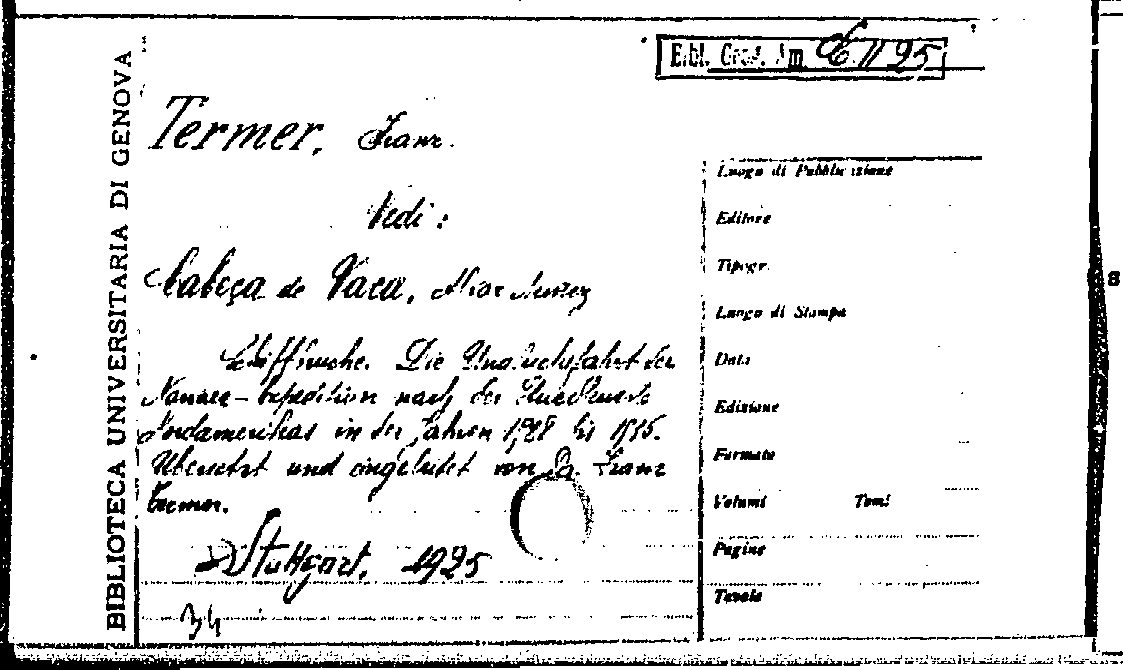 BIBLIOTECA UNIVERSITARIA DI GENOVA
Bibl. Geog. Am C. II 95
Termer, Franz.
Vedi:
Cabeça de Vaca, Alvar Nuñez
Schiffbrüche. Die Unglücksfahrt der
Narvaez-Expedition nach der Südküste
Nordamerikas in den Jahren 1528 bis 1536.
Übersetzt und eingeleitet von Dr. Franz
Termer.
Stuttgart, 1925
Luogo di Pubblicazione
Editore
Tipogr.
Luogo di Stampa
Data
Edizione
Formato
Volumi Tomi
Pagine
Tavole
8